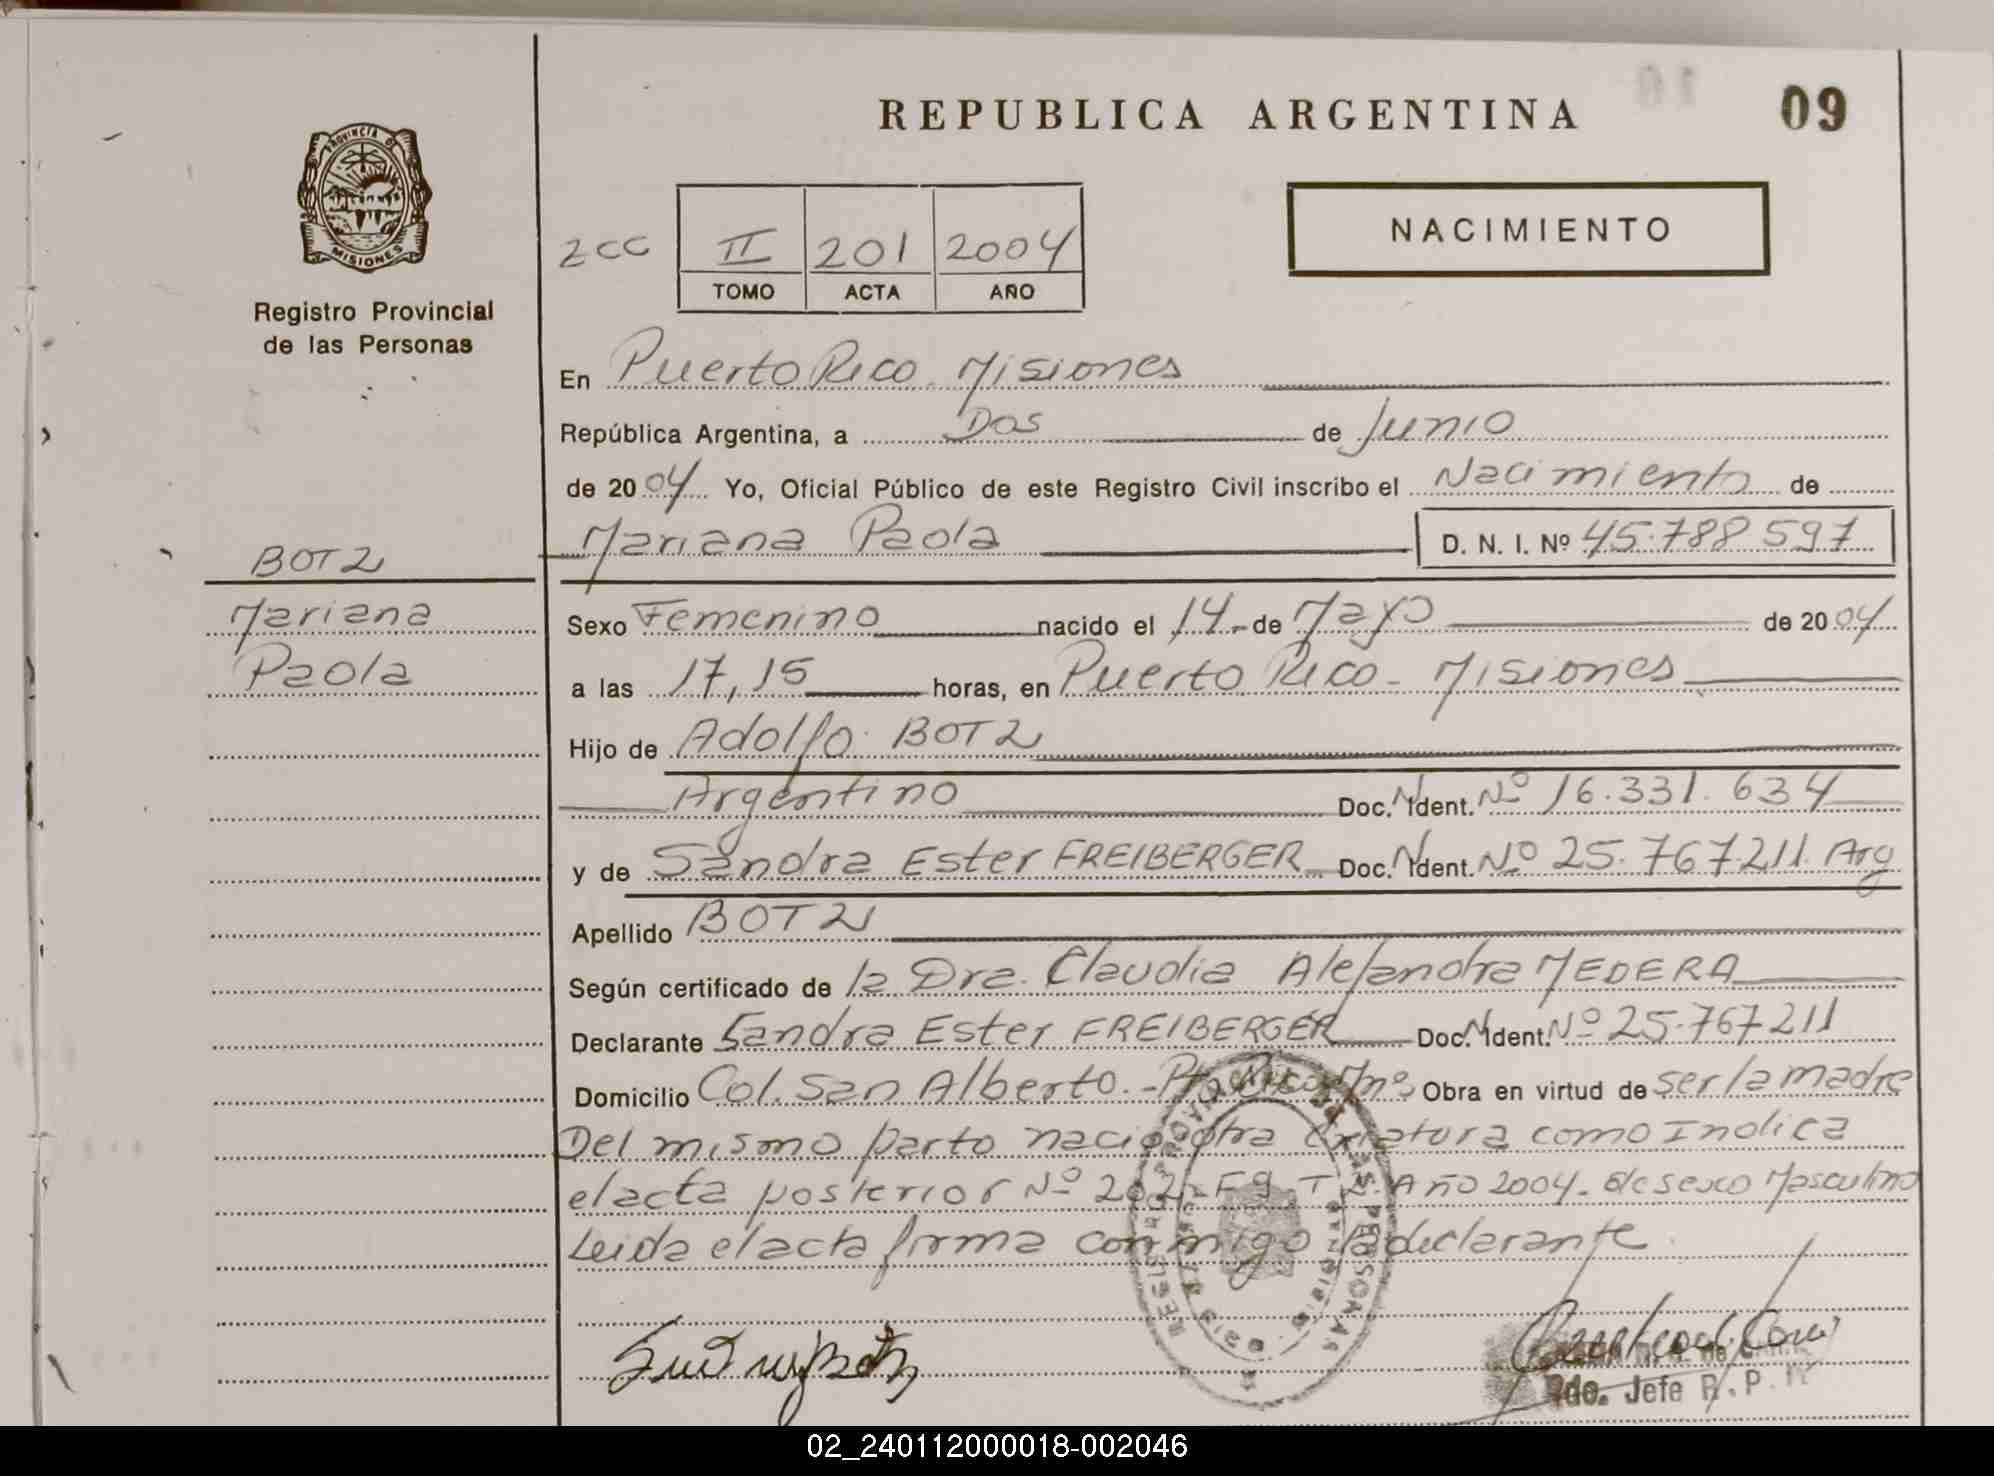 REPUBLICA ARGENTINA
09
PROVINCIA DE
MISIONES
Registro Provincial
de las Personas
2CC
II 201 2004
TOMO ACTA AÑO
NACIMIENTO
En Puerto Rico - Misiones
República Argentina, a Dos de Junio
de 2004 Yo, Oficial Público de este Registro Civil inscribo el Nacimiento de
Mariana Paola D. N. I. Nº 45.788.597
BOTZ
Mariana
Paola
Sexo Femenino nacido el 14 - de Mayo de 2004
a las 17,15 horas, en Puerto Rico - Misiones
Hijo de Adolfo BOTZ
Argentino Doc. N. Ident. Nº 16.331.634
y de Sandra Ester FREIBERGER Doc. N. Ident. Nº 25.767211. Arg
Apellido BOTZ
Según certificado de la Dra. Claudia Alejandra MEDERA
Declarante Sandra Ester FREIBERGER Doc. N. Ident. Nº 25.767211
Domicilio Col. San Alberto - Pto Rico Mnes Obra en virtud de ser la madre
Del mismo parto nacio otra criatura como Indica
el acta posterior Nº 202 - F9 T 2. Año 2004. de sexo Masculino
Leida el acta firma conmigo la declarante.
Jefe R. P.
02_240112000018-002046